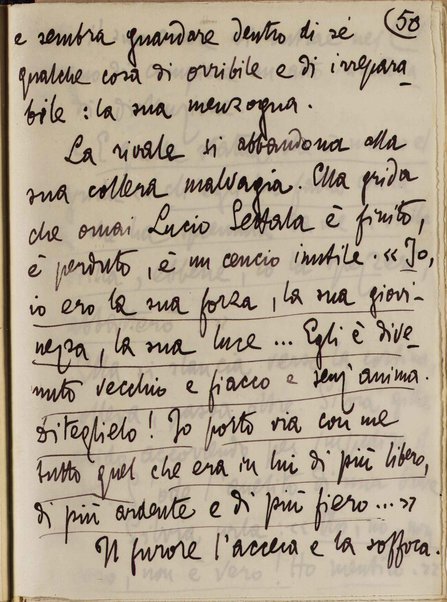 50
e sembra guardare dentro di sé
qualche cosa di orribile e di irrepara-
bile : la sua menzogna.
La rivale si abbandona alla
sua collera malvagia. Ella grida
che omai Lucio Settala è finito,
è perduto, è un cencio inutile. « Io,
io ero la sua forza, la sua giovi-
nezza, la sua luce ... Egli è dive-
nuto vecchio e fiacco e senz'anima.
Diteglielo! Io porto via con me
tutto quel che era in lui di più libero,
di più ardente e di più fiero ... »
Il furore l'accieca e la soffoca.